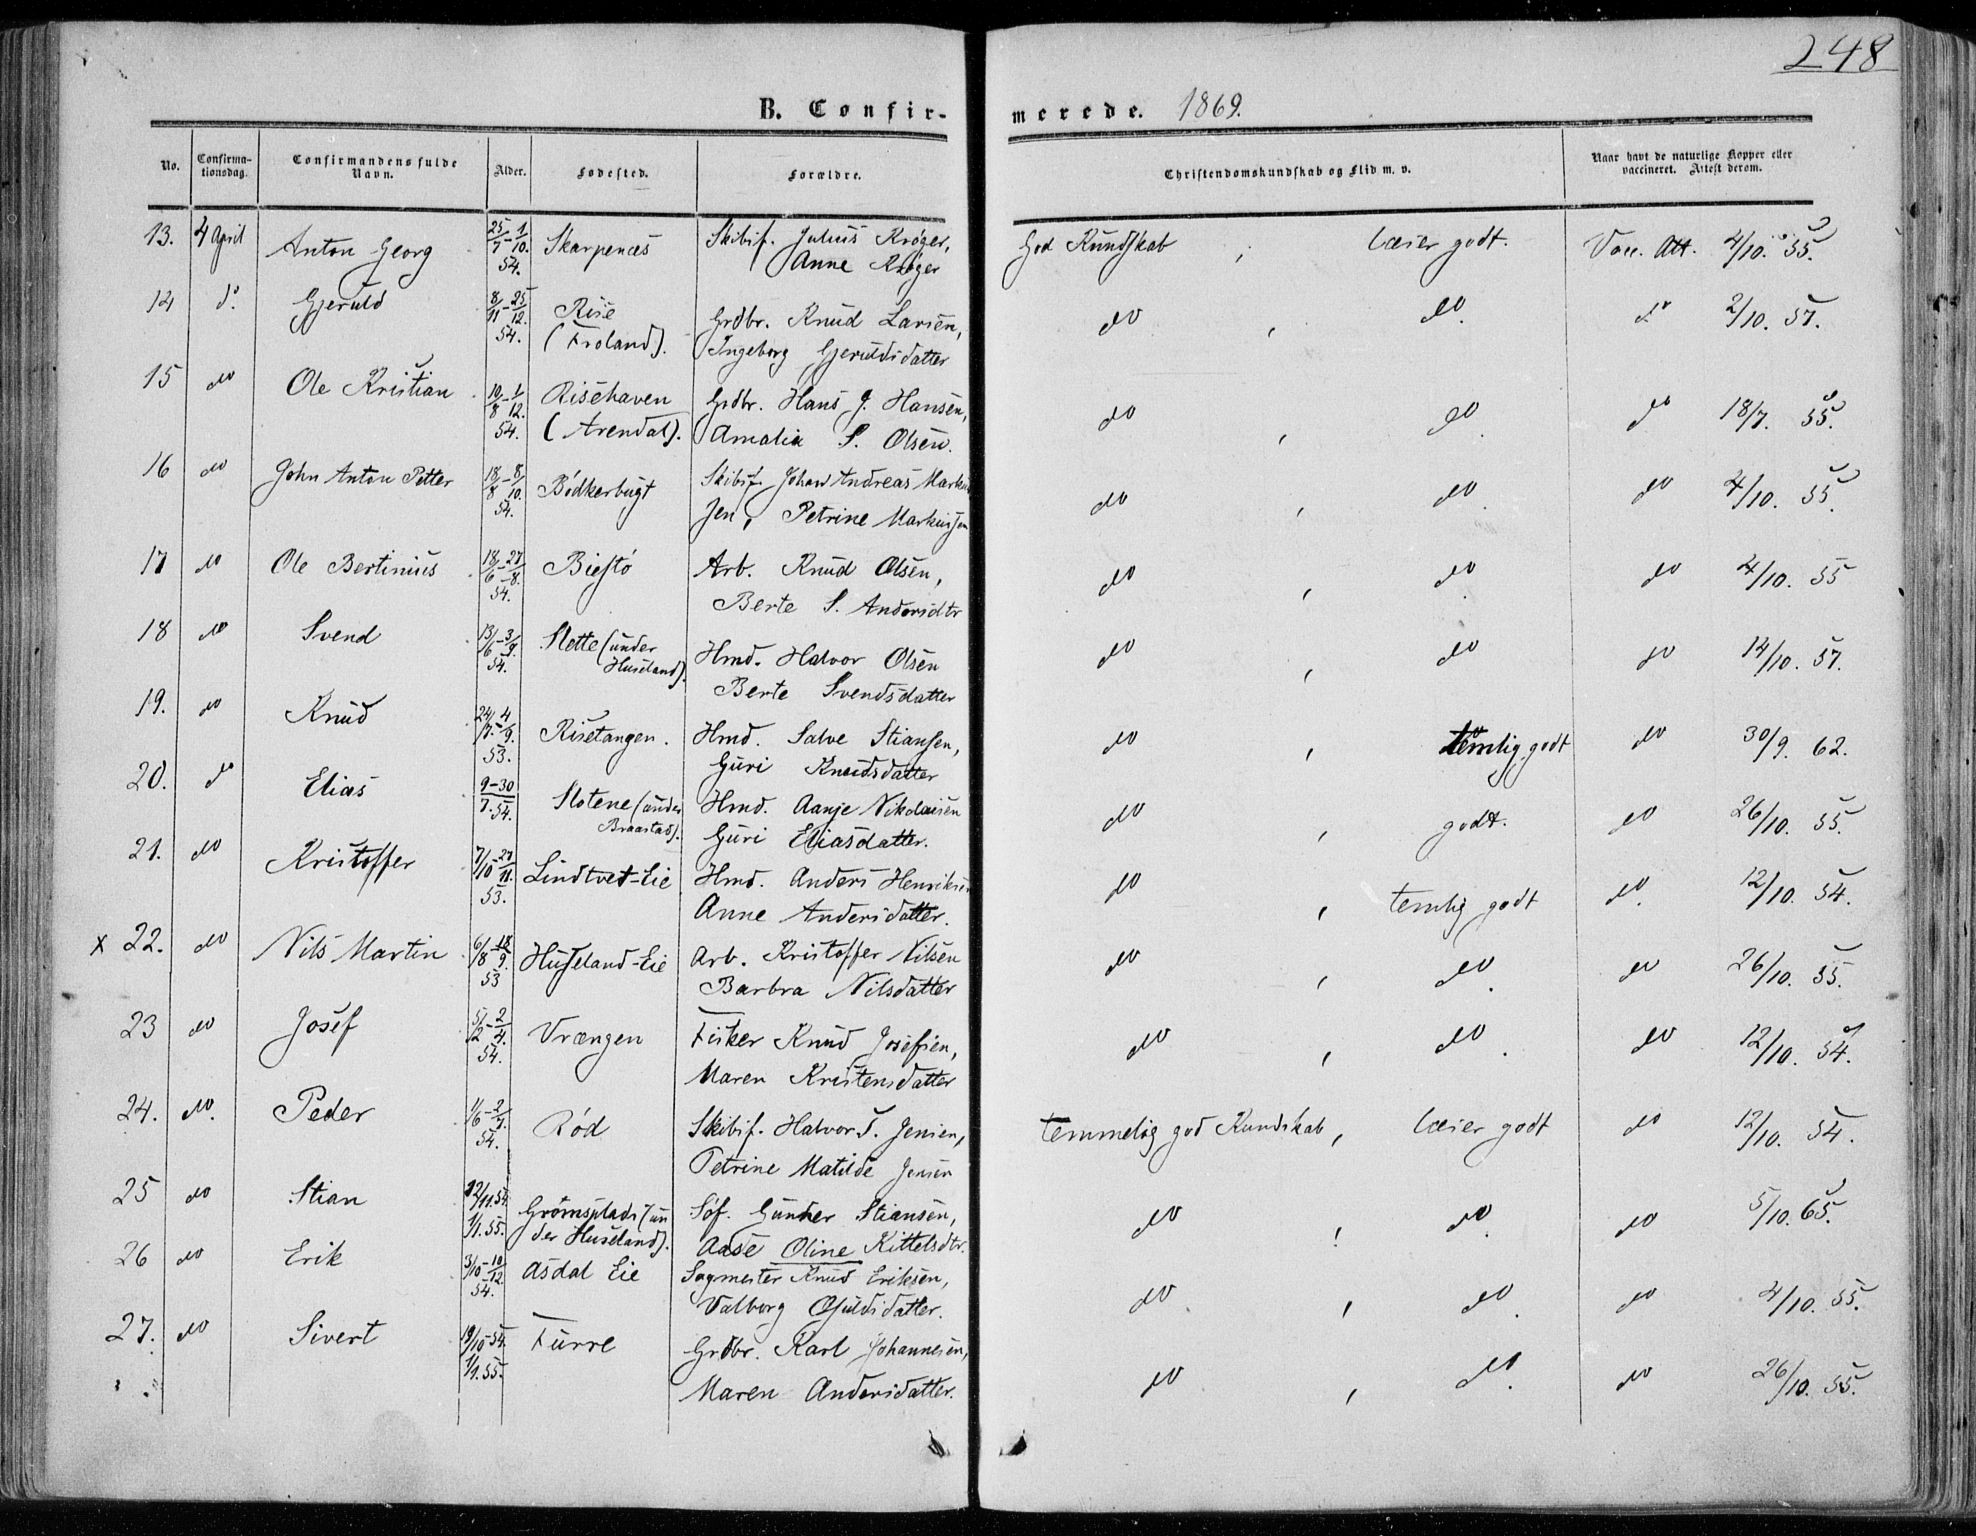 248
B. Confir-merede. 1869.
No. Confirmationsdag. Confirmandens fulde Navn. Alder. Fødested. Forældre. Christendomskundskab og Flid m. v. Naar havt de naturlige Kopper eller vaccineret. Attest derom.
13. 4 April Anton Georg 25/7 - 1/10. 54. Skarpenæs Skibsf. Julius Krøger, Anne Krøger God Kundskab, læser godt. Vacc. Att. 4/10. 55.
14 do Gjeruld 8/11 - 25/12. 54. Rise (Froland). Grdbr. Knud Larsen, Ingeborg Gjeruldsdatter do, do. do 2/10. 57.
15 do Ole Kristian 10/8 - 1/12. 54. Risehaven (Arendal). Grdbr. Hans J. Hansen, Amalia S. Olsen. do, do. do 18/7. 55.
16 do John Anton Petter 18/8 - 8/10. 54. Bødkerbugt Skibsf. Johan Andreas Markussen, Petrine Markussen do, do. do 4/10. 55.
17 do Ole Bertinius 18/6 - 27/8. 54. Biestø Arb. Knud Olsen, Berte S. Andersdtr do, do. do 4/10. 55
18 do Svend 13/6 - 3/9. 54. Slette (under Huseland). Hmd. Halvor Olsen Berte Svendsdatter do, do. do 14/10. 57.
19. do Knud 24/7. - 4/9. 53. Risetangen. Hmd. Salve Stiansen, Guri Knudsdatter do, temlig godt do 30/9. 62.
20. do Elias 9-30/7. 54. Slotene (under Braastad). Hmd. Aanje Nikolaisen Guri Eliasdatter. do, godt. do 26/10. 55.
21. do Kristoffer 7/10 - 27/11. 53. Lindtvet-Eie Hmd. Anders Henriksen Anne Andersdatter. do, temlig godt do. 12/10. 54.
x 22. do Nils Martin 6/8 - 18/9. 53 Huseland-Eie Arb. Kristoffer Nilsen Barbra Nilsdatter do, do. do 26/10. 55.
23 do Josef 5/2 - 2/4. 54. Vrængen Fisker Knud Josefsen, Maren Kristensdatter do, do. do 12/10. 54.
24. do. Peder 1/6 - 2/7. 54. Rød Skibsf. Halvor T. Jensen, Petrine Matilde Jensen temmelig god Kundskab, læser godt do 12/10. 54.
25 do Stian 22/11. 54. 1/1. 55. Grømsplads (under Huseland). Søf. Gunder Stiansen, Aase Oline Kittelsdtr. do, do. do 5/10. 65.
26 do Erik 3/10 - 10/12. 54. Asdal Eie Sagmester Knud Eriksen, Valborg Osuldsdatter. do, do. do 4/10. 55.
27. do Sivert 19/10 54. 1/1. 55. Furre Grdbr. Karl Johannesen, Maren Andersdatter. do, do. do 26/10. 55.